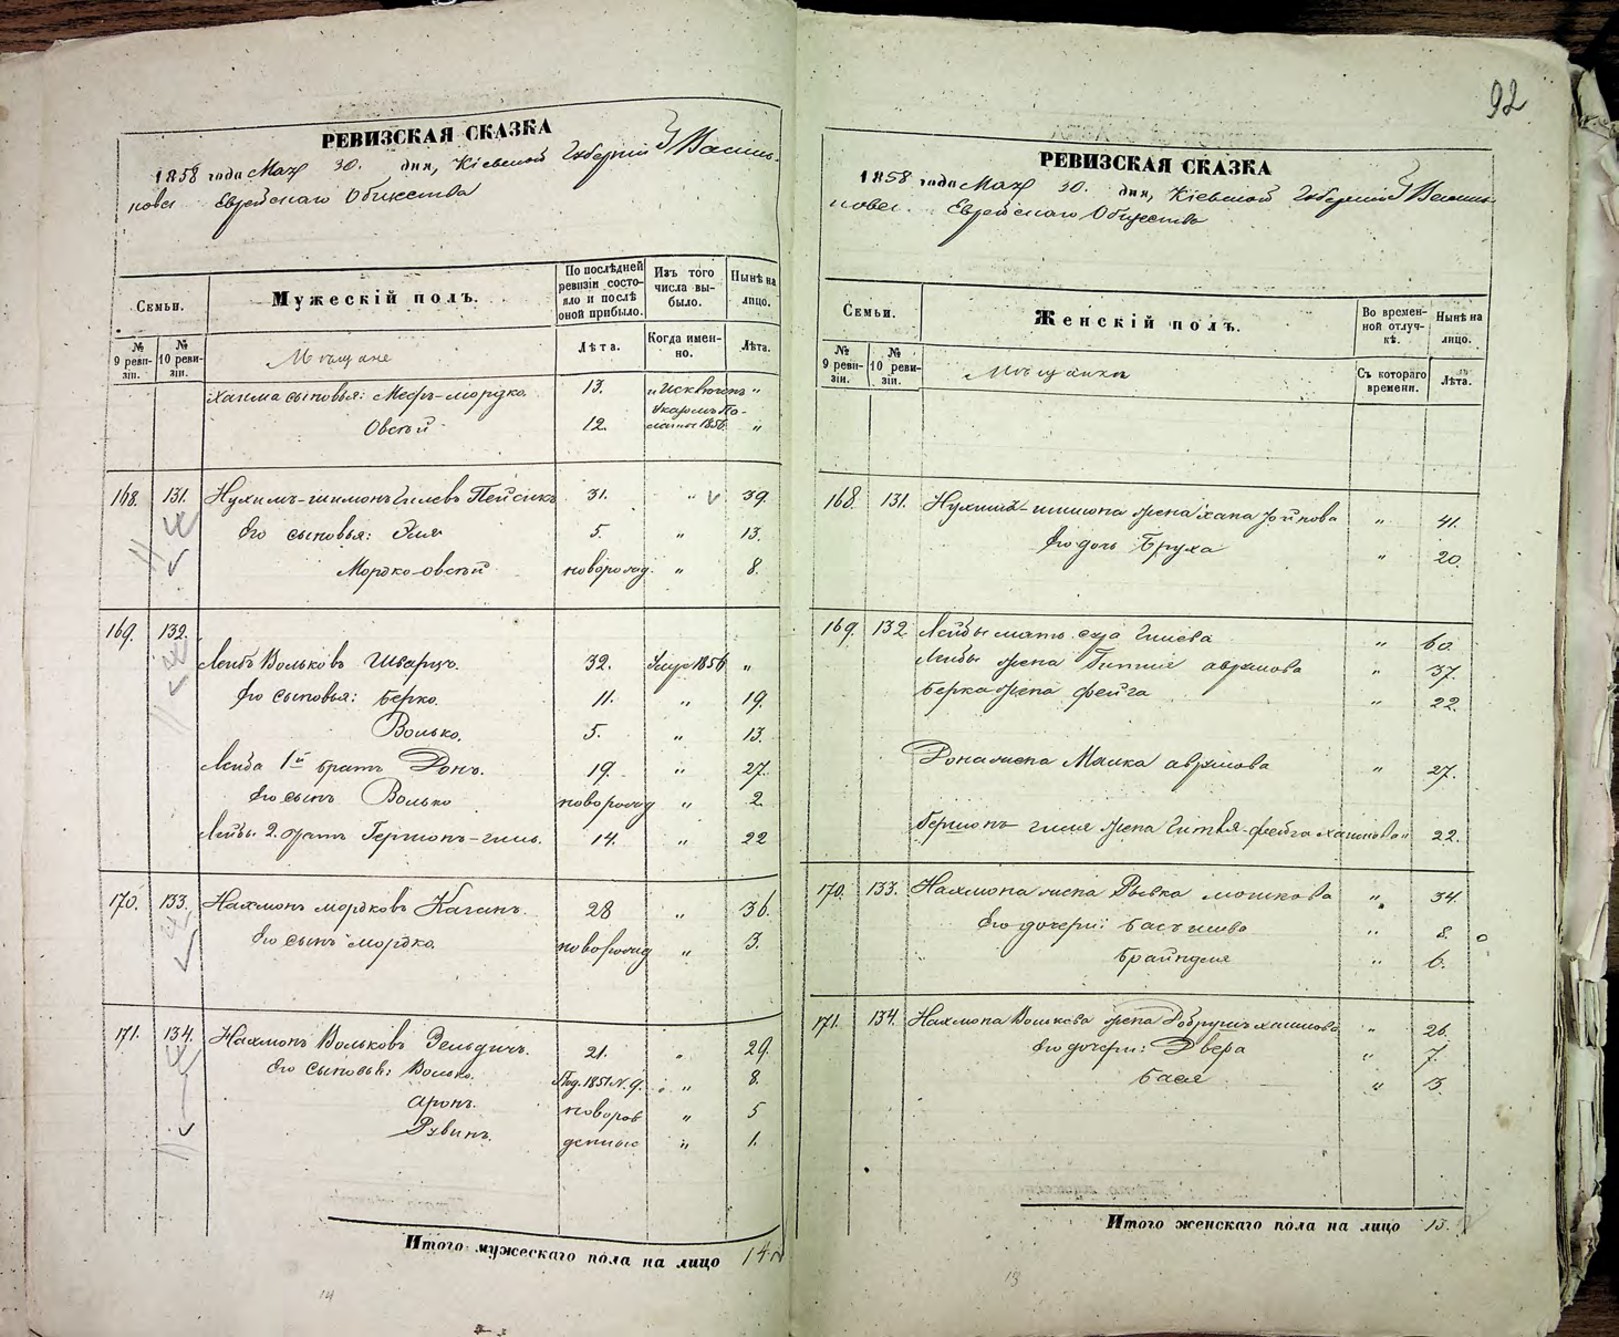 92
РЕВИЗСКАЯ СКАЗКА
1858 года Мая 30. дня, Кіевской Губерніи Васильковск. Еврейскаго Общества
Семьи.
Мужескій полъ.
По послѣдней ревизіи состояло и послѣ оной прибыло.
Изъ того числа выбыло.
Нынѣ на лицо.
№ 9 ревизіи.
№ 10 ревизіи.
Мѣщане
Лѣта.
Когда именно.
Лѣта.
Хаима сыновья: Меер-мордко. 13. „ Исключенъ „
Овсѣй 12. Указомъ Палаты 1856 „
168. 131. Нухимъ-шимонъ Гилевъ Пейсикъ 31. „ 39.
Его сыновья: Эля 5. „ 13.
Мордко-овсѣй новорожд. „ 8.
169. 132.
Лейбъ Вольковъ Шварцъ. 32. Умр 1856 „
Его сыновья: Берко. 11. „ 19.
Волько. 5. „ 13.
Лейба 1й братъ Ронъ. 19. „ 27.
Его сынъ Волько новорожд „ 2.
Лейбы 2. братъ Гершонъ-гиль. 14. „ 22
170. 133. Нахмонъ мордковъ Каганъ. 28 „ 36.
Его сынъ мордко. новорожд „ 3.
171. 134. Нахмонъ Вольковъ Зельдичъ. 21. „ 29.
Его сыновья: Волько. Под. 1851 N. 9. „ 8.
Аронъ. новорож „ 5
Рувинъ. денные „ 1.
Итого мужескаго пола на лицо 14
14
РЕВИЗСКАЯ СКАЗКА
1858 года Мая 30. дня, Кіевской Губерніи Васильковск. Еврейскаго Общества
Семьи.
Женскій полъ.
Во временной отлучкѣ.
Нынѣ на лицо.
№ 9 ревизіи.
№ 10 ревизіи.
Мѣщанки
Съ котораго времени.
Лѣта.
168. 131. Нухима-шимона жена хана Іойнова „ 41.
Его дочь Бруха „ 20.
169. 132 Лейбы мать Гилева „ 60.
Лейбы жена Гитля аврумова „ 37.
Берка жена фейга „ 22.
Рона жена Малка аврумова „ 27.
Гершонъ гиля жена Гитля-фейга хаимова „ 22.
170. 133. Нахмона жена Рывка мошкова „ 34.
Его дочери: Басъшева „ 8.
Брайндля „ 6.
171. 134. Нахмона Волькова жена Добрушъ хаимова „ 26.
Его дочери: Двера „ 7.
Бася „ 3.
Итого женскаго пола на лицо 13.
13